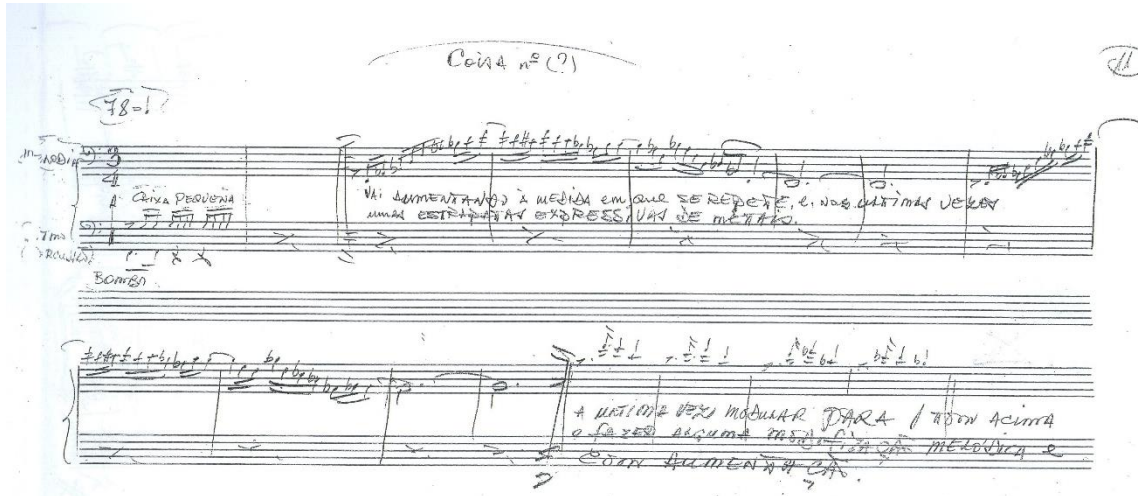 Coisa nº (?)
11
78=
3
4
Caixa Pequena
Vai aumentando à medida em que se repete, e, nas últimas vezes
umas estripatas expressivas de metais.
Bombo
A última vez modular para 1 tom acima
e fazer alguma modificação melódica e
com aumentação.